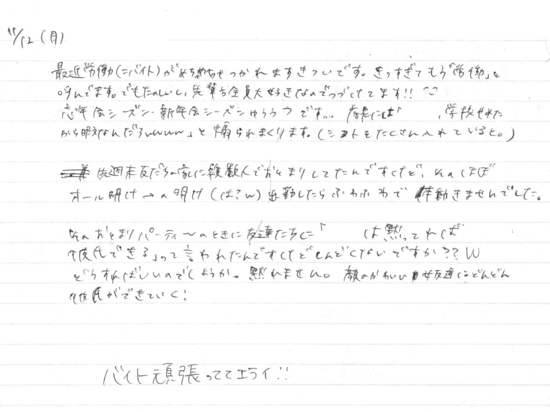 11/12(月)
最近労働(=バイト)がめちゃめちゃつかれますきついです。きつすぎてもう「労働」と
呼んでます。でもたのしいし、先輩も全員大好きなのでつづけてます!!
忘年会シーズン・新年会シーズンゆううつです… 店長には「 学校せわた
から暇なんだろwwww」と煽られまくります。(シフトをたくさん入れていると。)
先週末友だちの家に複数人でおとまりしてたんですけど、そのほぼ
オール明け→の明け(は?w)出勤したらふわふわで体動きませんでした。
そのおとまりパーティ〜のときに友達たちに「 は黙ってれば
彼氏できる」って言われたんですけどしんどくないですか??w
どうすればいいのでしょうか。黙れません。顔のかわいい女友達にどんどん
彼氏ができていく!
バイト頑張っててエライ!!